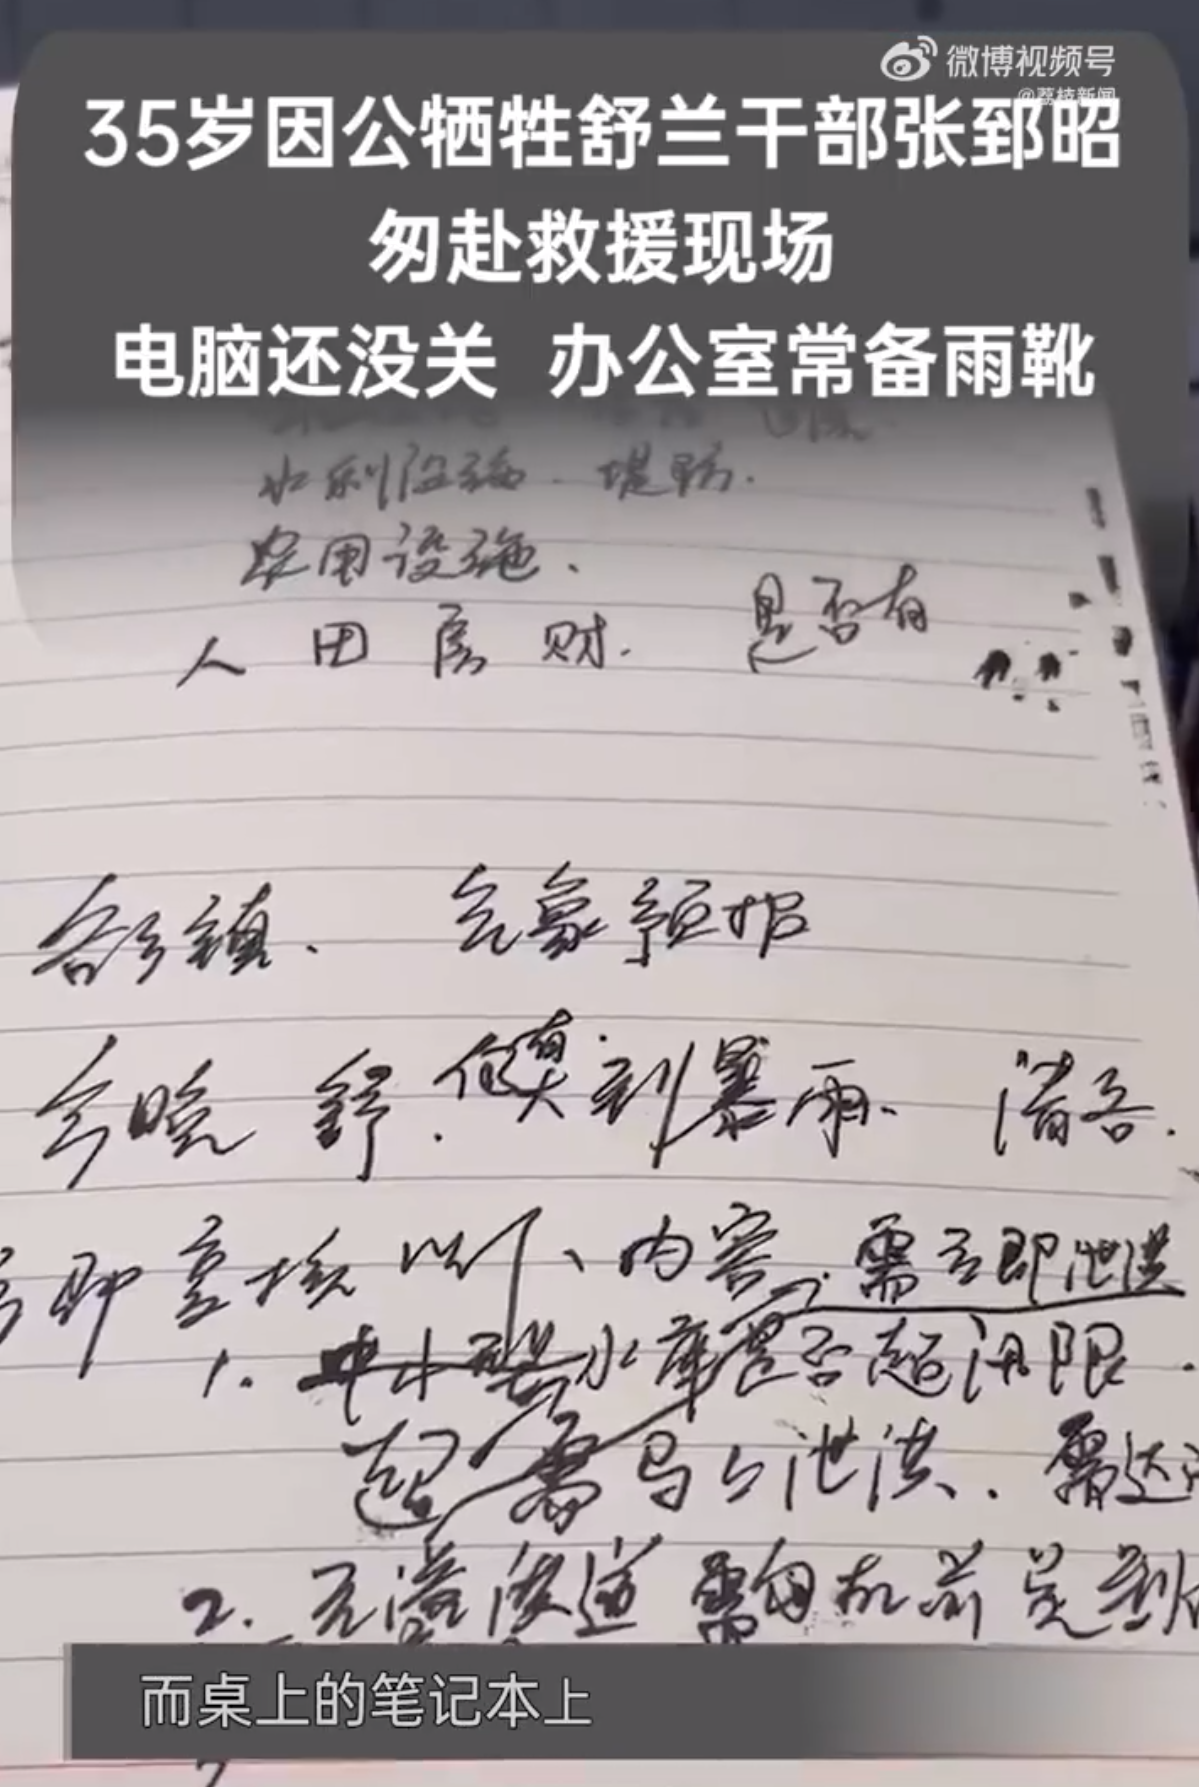 微博视频号
@荔枝新闻
35岁因公牺牲舒兰干部张郅昭
匆赴救援现场
电脑还没关 办公室常备雨靴
水利设施. 堤防.
农田设施.
人 田 房 财. 是否有
各乡镇. 气象预报
今晚 舒. 有大到暴雨. 请各.
即 以下内容. 需立即泄洪
1. 水库是否超汛限.
超 需马上泄洪. 需达
2. 需 机 前
而桌上的笔记本上